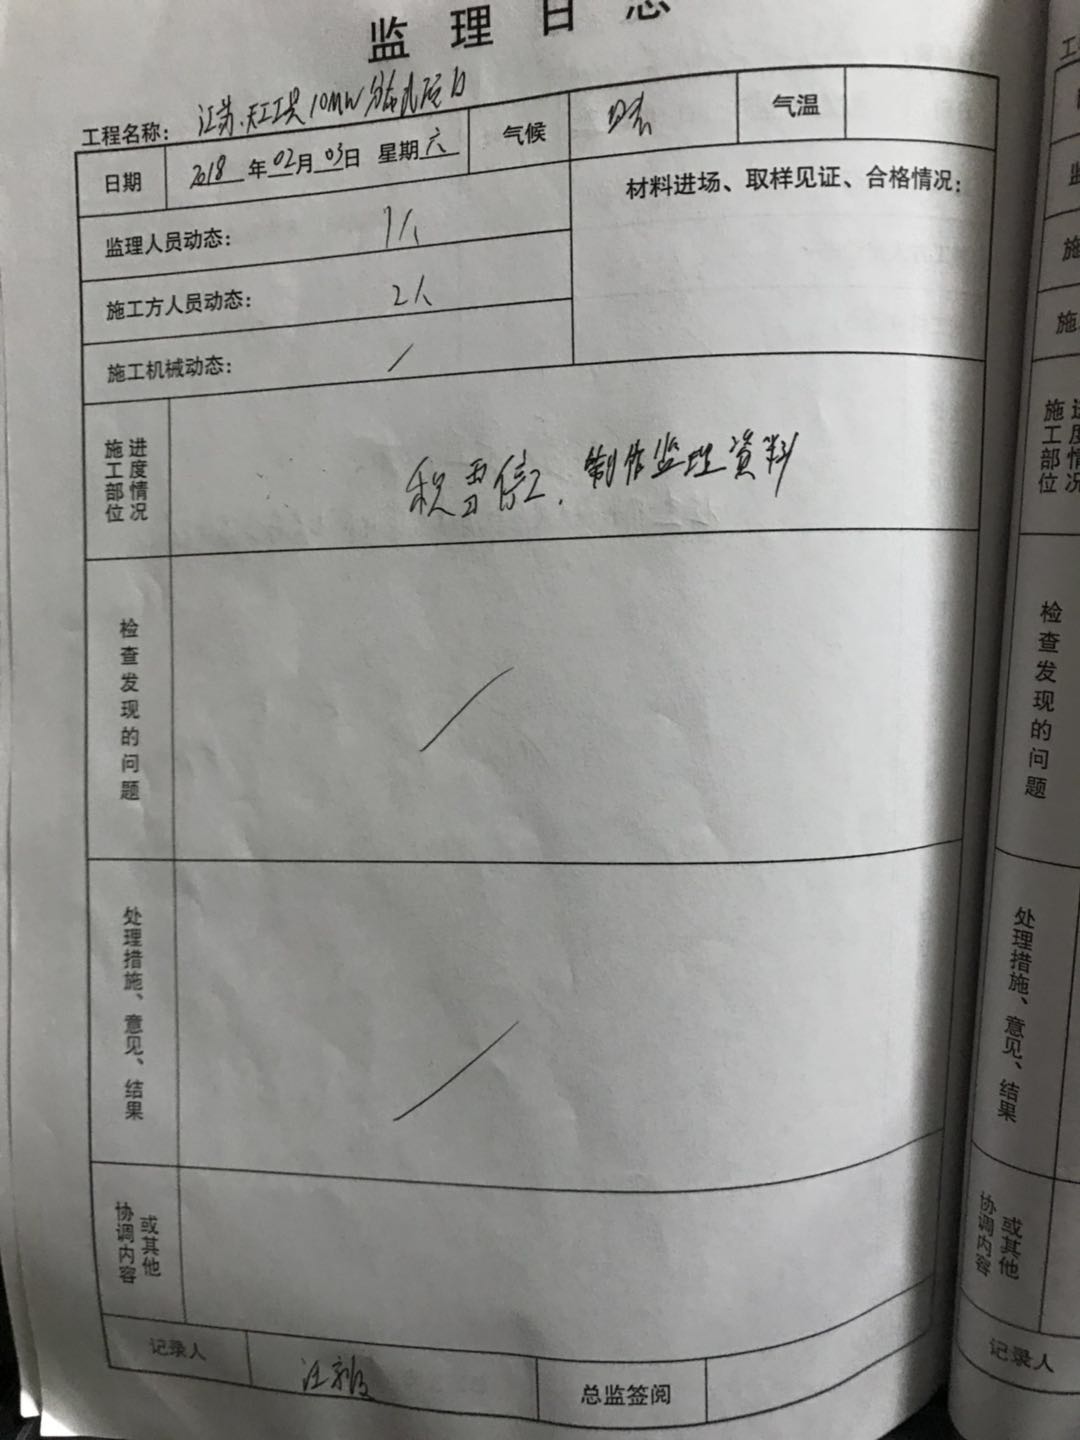 监理日志
工程名称： 江苏.天工工具10MW分布式
日期 2018年02月03日 星期六 气候 气温
监理人员动态： 1人
材料进场、取样见证、合格情况：
施工方人员动态： 2人
施工机械动态： /
施工部位
进度情况
积雪停工、制作监理资料
检查发现的问题
/
处理措施、意见、结果
/
协调内容
或其他
记录人 汪 总监签阅
工
监
施
施
施工部位
进度情况
检查发现的问题
处理措施、意见、结果
协调内容
或其他
记录人